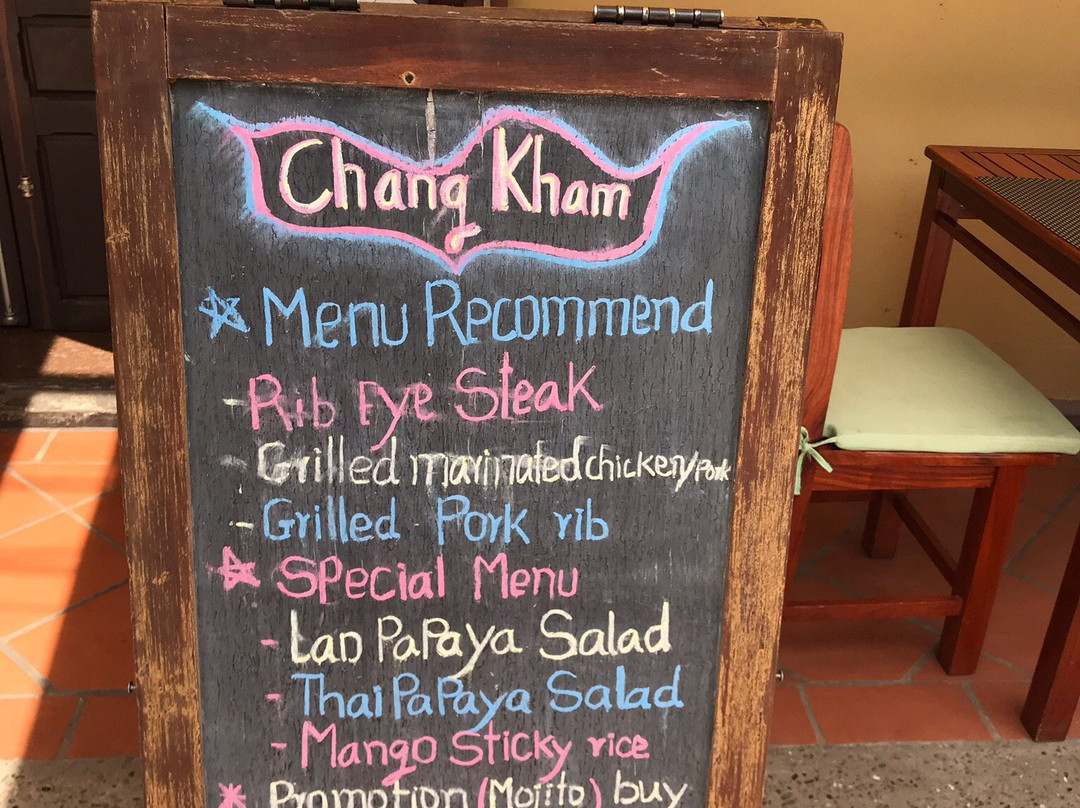 Chang Kham
☆ Menu Recommend
- Rib Eye Steak
- Grilled marinated chicken/Pork
- Grilled Pork rib
☆ Special Menu
- Lao PaPaya Salad
- Thai PaPaya Salad
- Mango Sticky rice
* Promotion (Mojito) buy